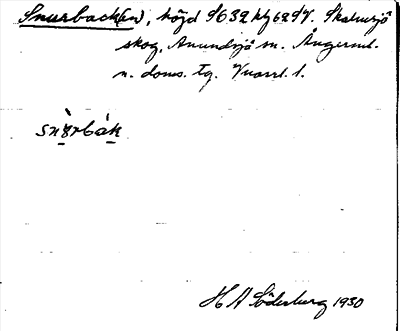 Snurbacken), höjd S632 kfg297. Skalmsjö
skog, Anundsjö sn. Ångerml.
n. doms. tg. Vuarrl. 1.
snùrbák
H A Söderberg 1930